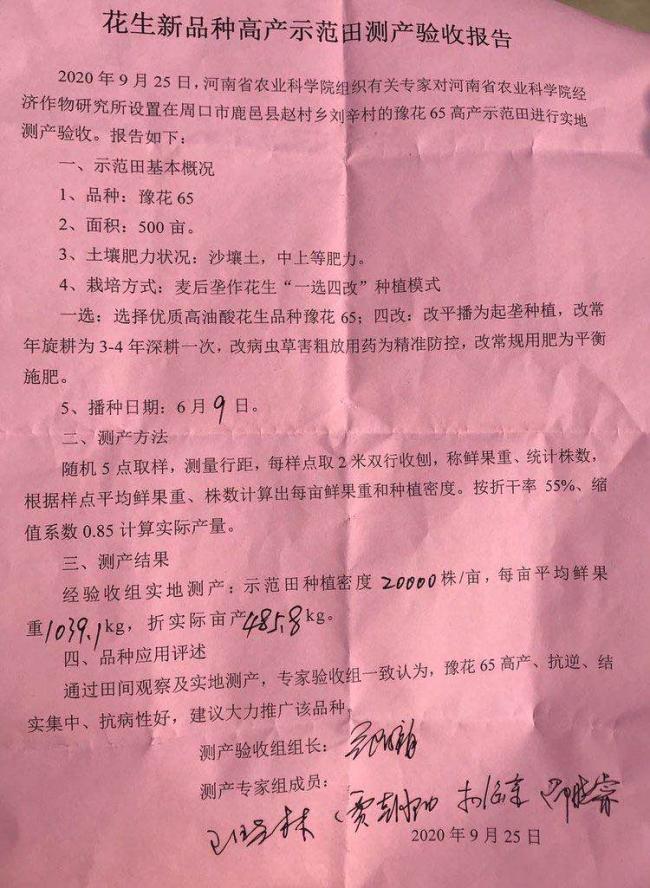 花生新品种高产示范田测产验收报告
2020年9月25日，河南省农业科学院组织有关专家对河南省农业科学院经
济作物研究所设置在周口市鹿邑县赵村乡刘辛村的豫花65高产示范田进行实地
测产验收。报告如下：
一、示范田基本概况
1、品种：豫花65
2、面积：500亩。
3、土壤肥力状况：沙壤土，中上等肥力。
4、栽培方式：麦后垄作花生“一选四改”种植模式
一选：选择优质高油酸花生品种豫花65；四改：改平播为起垄种植，改常
年旋耕为3-4年深耕一次，改病虫草害粗放用药为精准防控，改常规用肥为平衡
施肥。
5、播种日期：6月9日。
二、测产方法
随机5点取样，测量行距，每样点取2米双行收刨，称鲜果重、统计株数，
根据样点平均鲜果重、株数计算出每亩鲜果重和种植密度。按折干率 55%、缩
值系数0.85计算实际产量。
三、测产结果
经验收组实地测产：示范田种植密度20000株/亩，每亩平均鲜果
重1039.1kg，折实际亩产485.8kg。
四、品种应用评述
通过田间观察及实地测产，专家验收组一致认为，豫花65高产、抗逆、结
实集中、抗病性好，建议大力推广该品种。
测产验收组组长：
测产专家组成员：
2020年9月25日